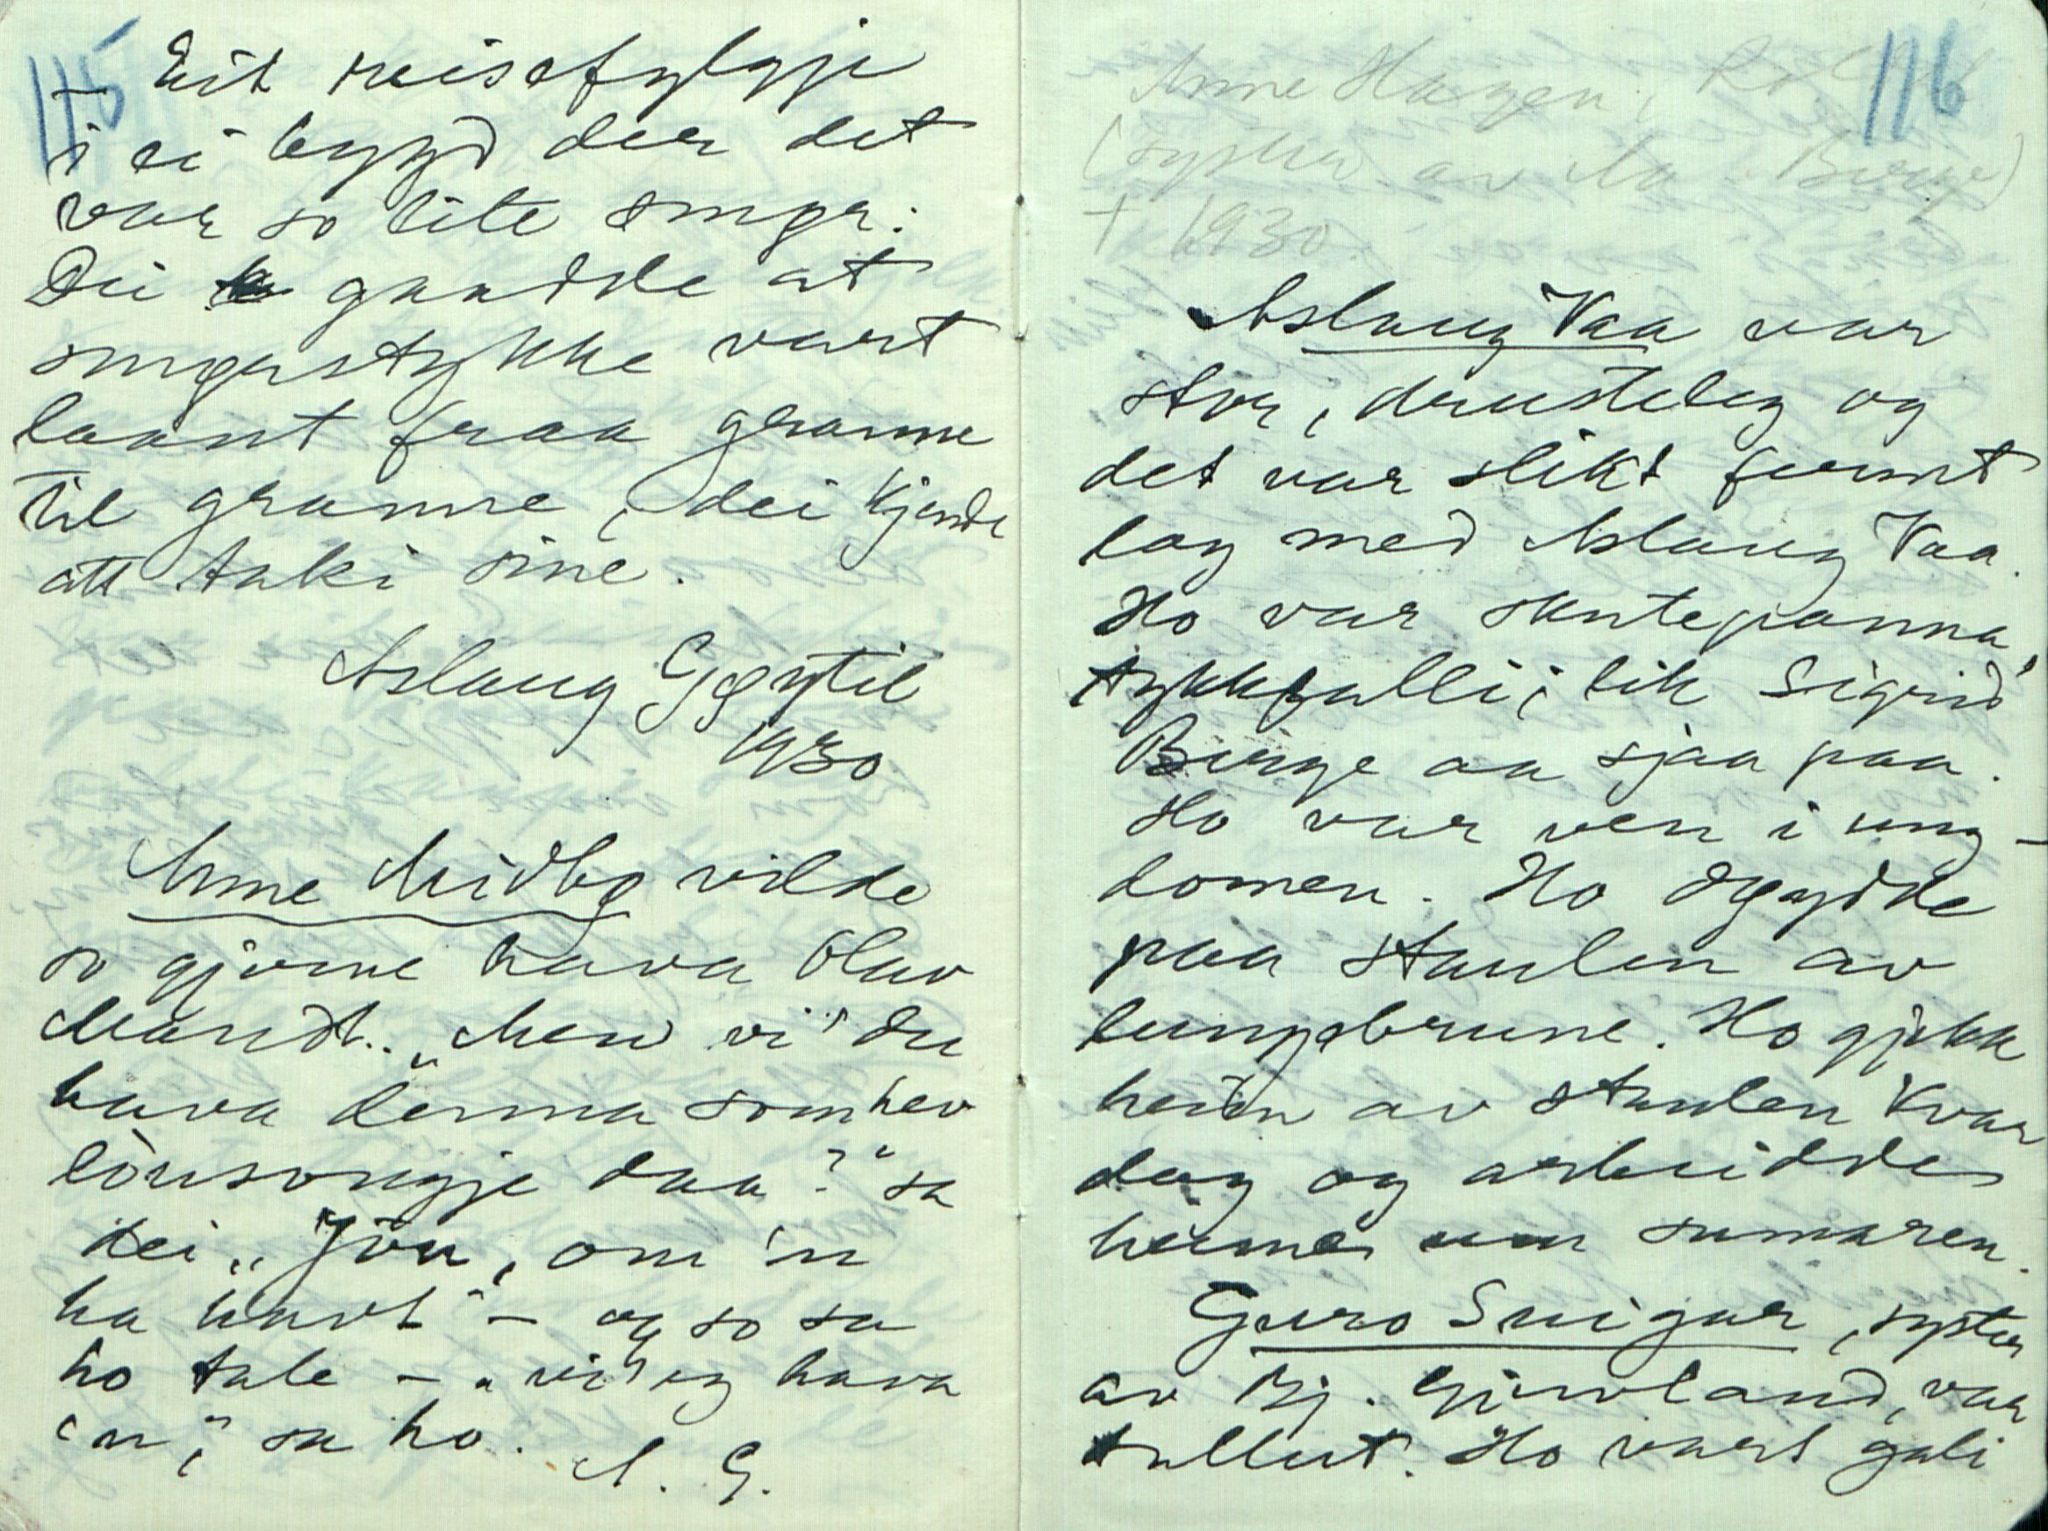 115
- Eit reisefylgje
i ei bygd der det
var so lite smør.
Dei gaadde at
smørstykke vart
laant fraa granne
til granne, dei kjende
att taki sine.
Aslaug Gøytil
1930
Anne Midbø vilde
so gjerne hava Olav
Mandt. "Men vi' du
hava denna som hev
lònsongje daa?" sa
dei "Jòu, om 'n
ha havt" - og so sa
ho tale - "vi' eg hava
'n," sa ho.
A. G.
116
Anne Hagen,
(syster av Berge)
† 1930.
Aslaug Vaa var
stor, drusteleg og
det var slikt furnt
lag med Aslaug Vaa.
Ho var skutepanna,
tykkfalli, lik Sigrid
Berge aa sjaa paa.
Ho var ven i ung-
domen. Ho døydde
paa staulen av
lungebrune. Ho gjekk
heim av staulen kvar
dag og arbeidde
heime um sumaren.
Guro Snigar, syster
av Bj. Gjuvland, var
tullut. Ho vart gali